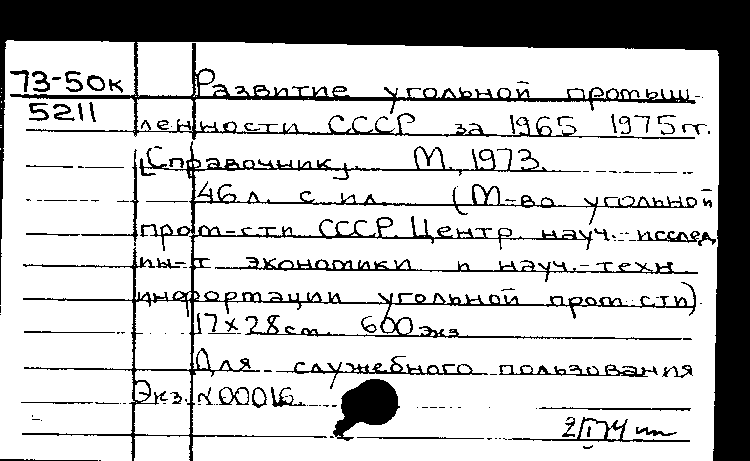 73-50к Развитие угольной промыш-
5211 ленности СССР за 1965 1975гг.
[Справочник]. М., 1973.
46 л. с ил. (М-во угольной
пром-сти СССР. Центр. науч.-исслед.
ин-т экономики и науч.-техн.
информации угольной пром-сти)
17×28 см. 600 экз.
Для служебного пользования
Экз. № 00016.